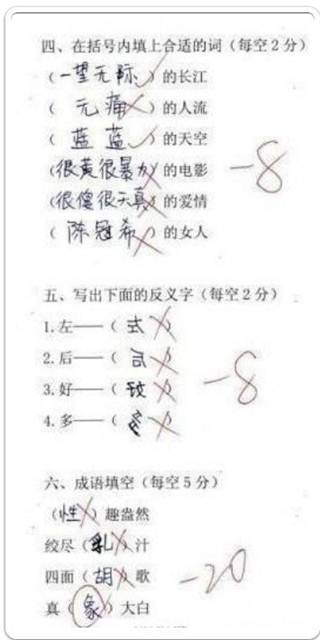 四、在括号内填上合适的词(每空2分)
(一望无际)的长江
(无痛)的人流
(蓝蓝)的天空
(很黄很暴力)的电影
(很傻很天真)的爱情
(陈冠希)的女人
-8
五、写出下面的反义字(每空2分)
1.左——( )
2.后——( )
3.好——( )
4.多——( )
-8
六、成语填空(每空5分)
(性)趣盎然
绞尽(乳)汁
四面(胡)歌
真(象)大白
-20